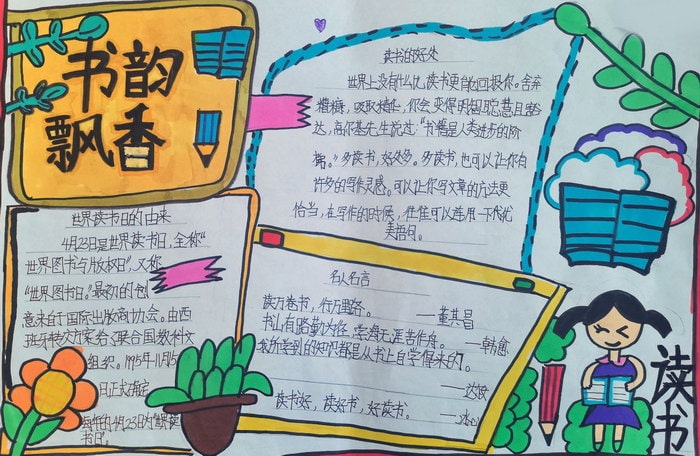 书韵
飘香
世界读书日的由来
4月23日是世界读书日,全称“
世界图书与版权日”,又称
“世界图书日。”最初的创
意来自于国际出版商协会。由西
班牙转交方案给了联合国教科文
组织。1995年11月15
日正式确定
每年的4月23日为“世界读
书日”。
读书的好处
世界上没有什么比读书更有的回报你。舍弃
糟糠,吸取精华,你会变得明智聪慧且豁
达,高尔基先生说过:“书籍是人类进步的阶
梯。”多读书,好处多。多读书,也可以让你有
许多的写作灵感。可以让你写文章的方法更
恰当,在写作的时候,往往可以运用一下优
美语句。
名人名言
读万卷书,行万里路。——董其昌
书山有路勤为径,学海无涯苦作舟。——韩愈
我所学到的知识都是从书上自学得来的。
——达
读书好,读好书,好读书。——冰心
读书